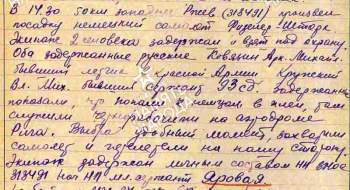 В 14.30 50 км западнее Ржев (318491) произвел
посадку немецкий самолет Физлер-Шторх
Экипаж 2 человека задержан и взят под охрану.
Оба задержанные русские Ковязин Арк. Михайл.
бывший летчик Красной Армии Кружский
Вл. Мих. бывший сержант 93 сд. задержанные
показали что попали к немцам в плен, там
служили чернорабочими на аэродроме
Рига. Выбрав удобный момент, захватили
самолет и перелетели на нашу сторону.
Экипаж задержан личным составом НП
318491 нач НП мл. сержант Яровая.